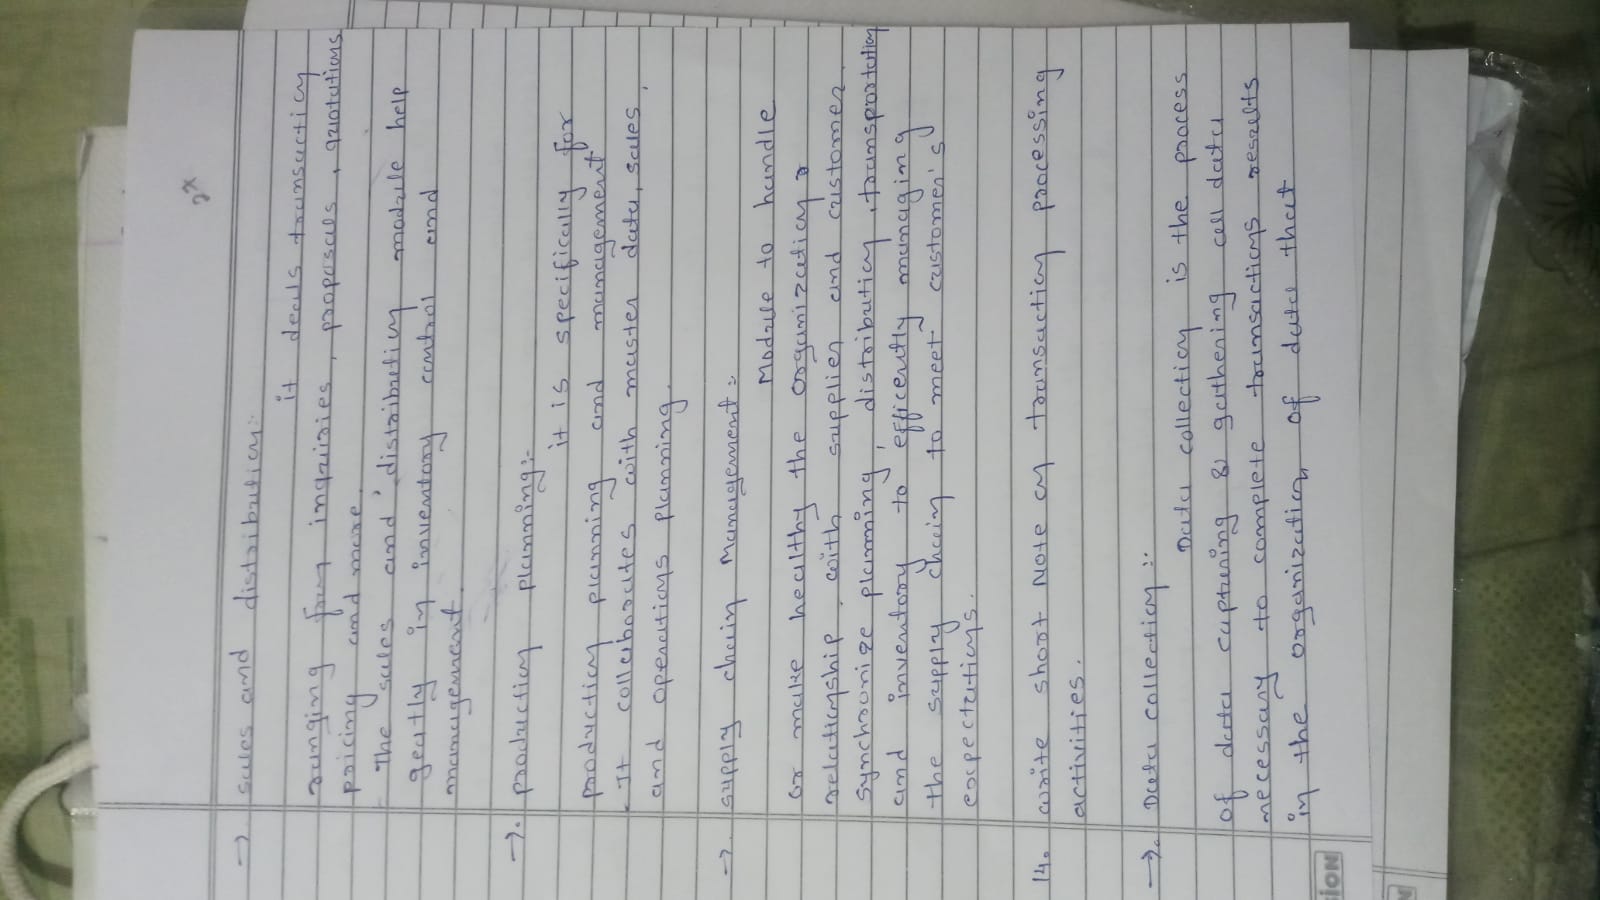 → sales and distribution:-
it deals transaction
ranging from inquiries, proposals, quotations
pricing and more.
- The sales and distribution module help
geatly in inventory control and
management.
→. production planning:-
it is specifically for
production planning and management
- It collaborates with master data, sales,
and operations planning.
→. supply chain Management:
Module to handle
or make healthy the organization
relationship with supplier and customer
synchronize planning, distribution, transportation
and inventory to efficently managing
the supply chain to meet customer's
expectations.
14. write short Note on transaction processing
activities.
→. Data collection :-
Data collection is the process
of data capturing & gathering all data
necessary to complete transactions results
in the organization of data that
SION
N